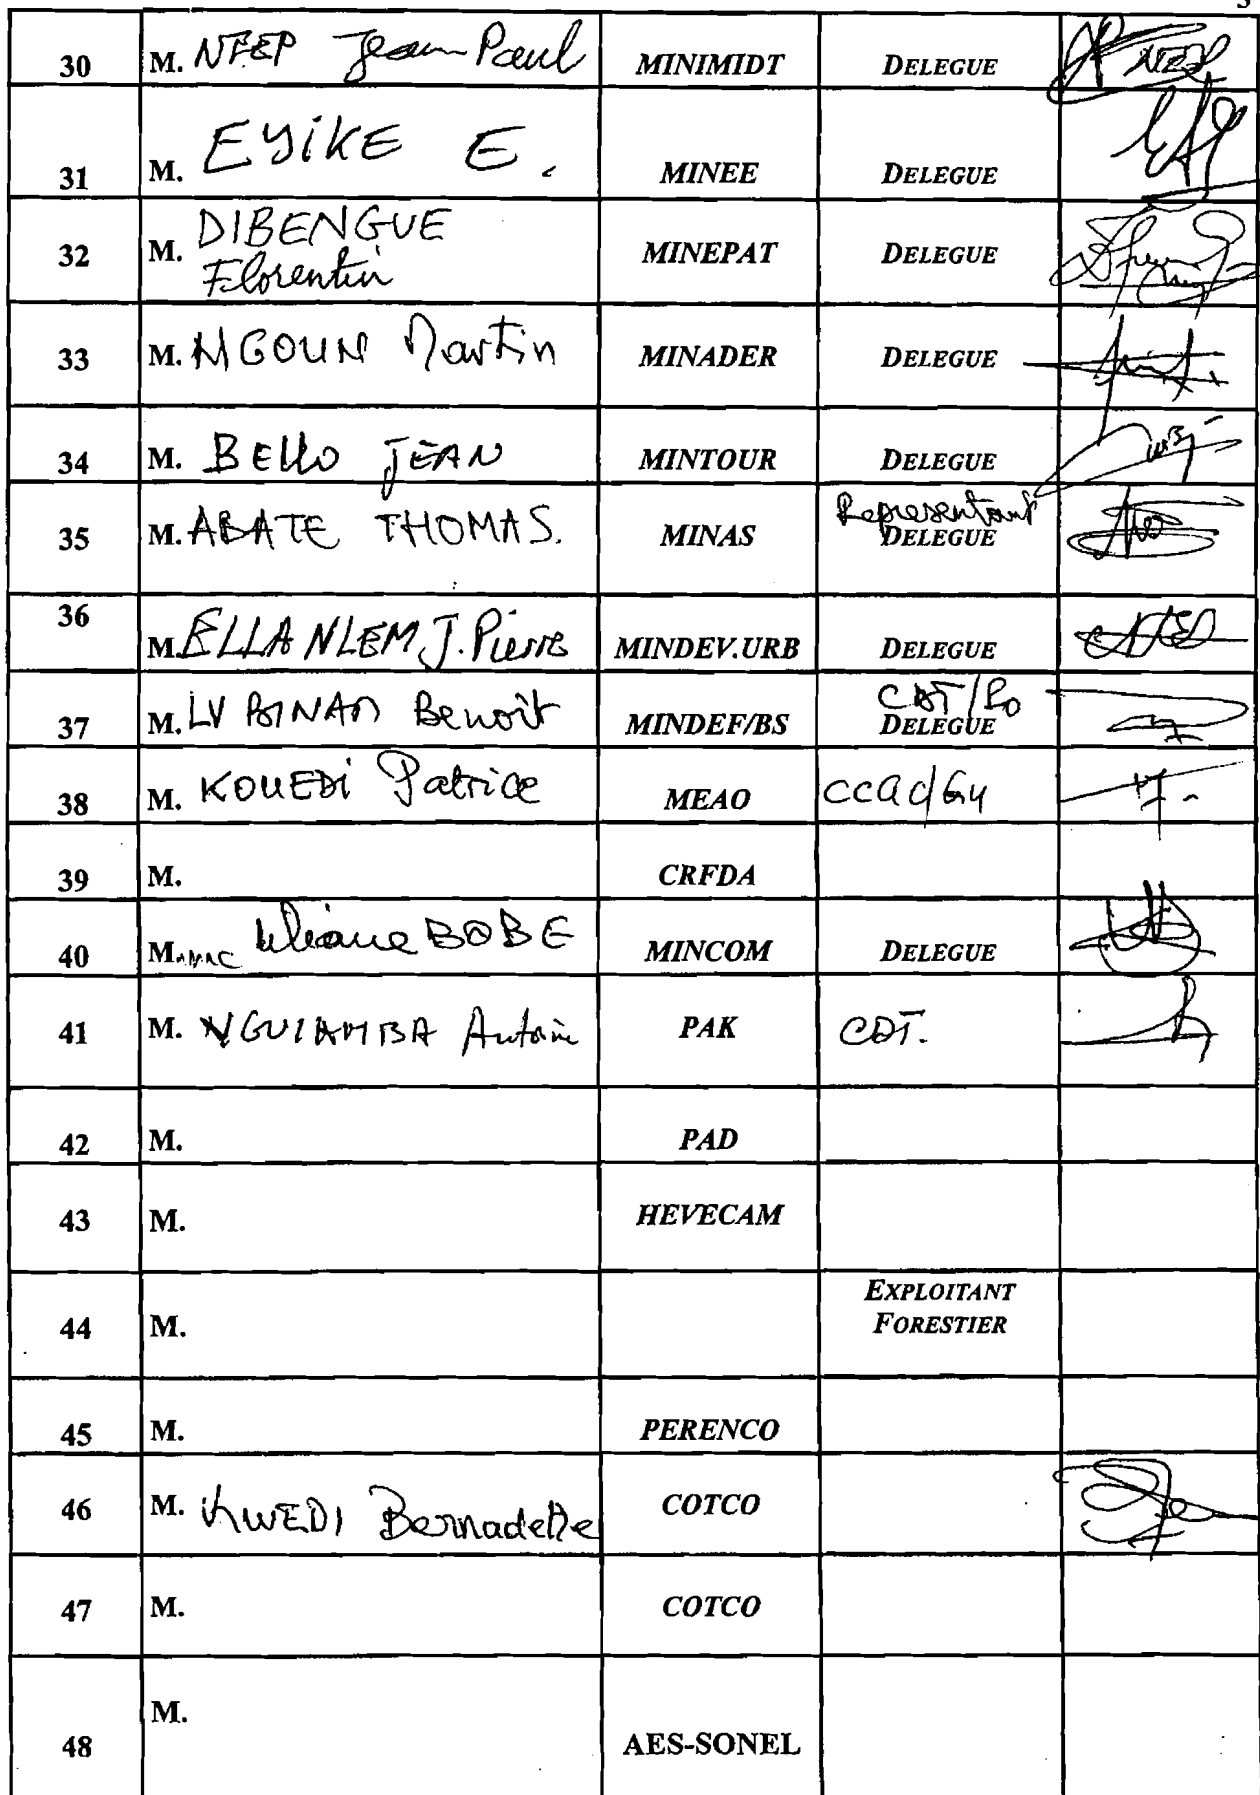 30 M. NFEP Jean Paul MINIMIDT DELEGUE
31 M. EYIKE E. MINEE DELEGUE
32 M. DIBENGUE Florentin MINEPAT DELEGUE
33 M. NGOUN Martin MINADER DELEGUE
34 M. BELLO JEAN MINTOUR DELEGUE
35 M. ABATE THOMAS. MINAS Representant DELEGUE
36 M. ELLA NLEM J. Pierre MINDEV.URB DELEGUE
37 M. LV Benoît MINDEF/BS DELEGUE
38 M. KOUEDI Patrice MEAO
39 M. CRFDA
40 M. BOBE MINCOM DELEGUE
41 M. NGUIAMBA Antoine PAK CDT.
42 M. PAD
43 M. HEVECAM
44 M. EXPLOITANT
FORESTIER
45 M. PERENCO
46 M. KWEDI Bernadette COTCO
47 M. COTCO
48 M. AES-SONEL